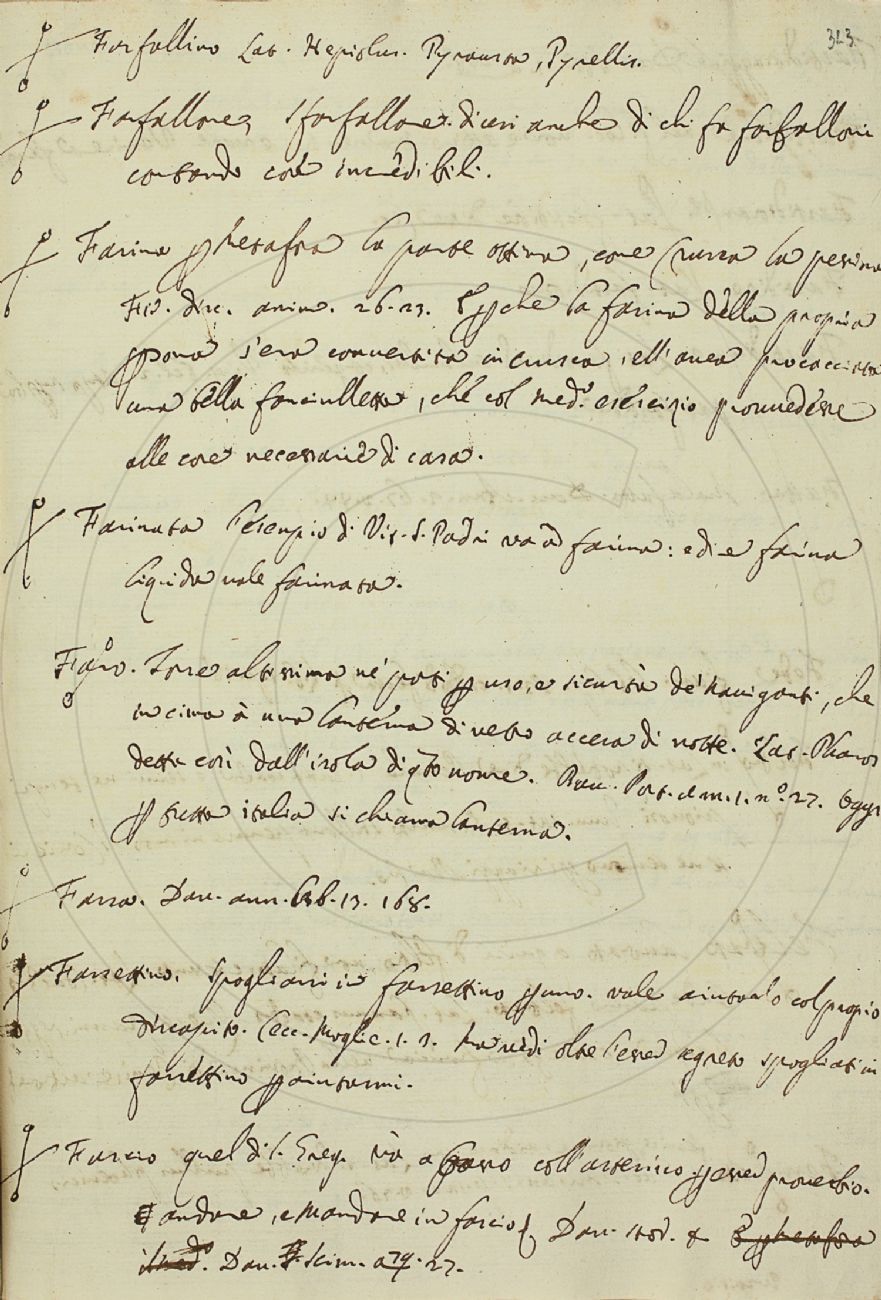 323
Farfallino Lat. Hepiolus. Pyrausta, Pyrellis.
Farfallone, sfarfallone. dicesi anche di chi fa farfalloni
contando cose incredibili.
Farina p metafra la parte ottima, come Crusca la pessima
Fir. disc. anim. 26. 23. E pche la farina della propria
psona s'era convertita in crusca, ell'avea procacciata
una bella fanciulletta, che col med.º esercizio provvedesse
alle cose necessarie di casa.
Farinata l'esempio di Vit. S. Padri va a farina: ed e farina
liquida vale farinata.
Faro. Torre altissima ne' porti p uso, e sicurtà de' naviganti, che
in cima à una lanterna di vetro accesa di notte. Lat. Pharos
detta così dall'isola di qto nome. nº. 27. Oggi
p tutta italia si chiama lanterna.
Farsa. Dav. ann. lib. 13. 168.
Farsettino. Spogliarsi in farsettino p uno. vale aiutarlo col proprio
discapito. Cecc. Moglie. 1. 3. spogliati in
farsettino p aiutarmi.
Fascio quel di S. Greg. và a passo coll'asterisco p essere proverbio.
E andare, e Mandare in fascio Dav. & E p metafra
il med.º. Dav. Scism. 27.